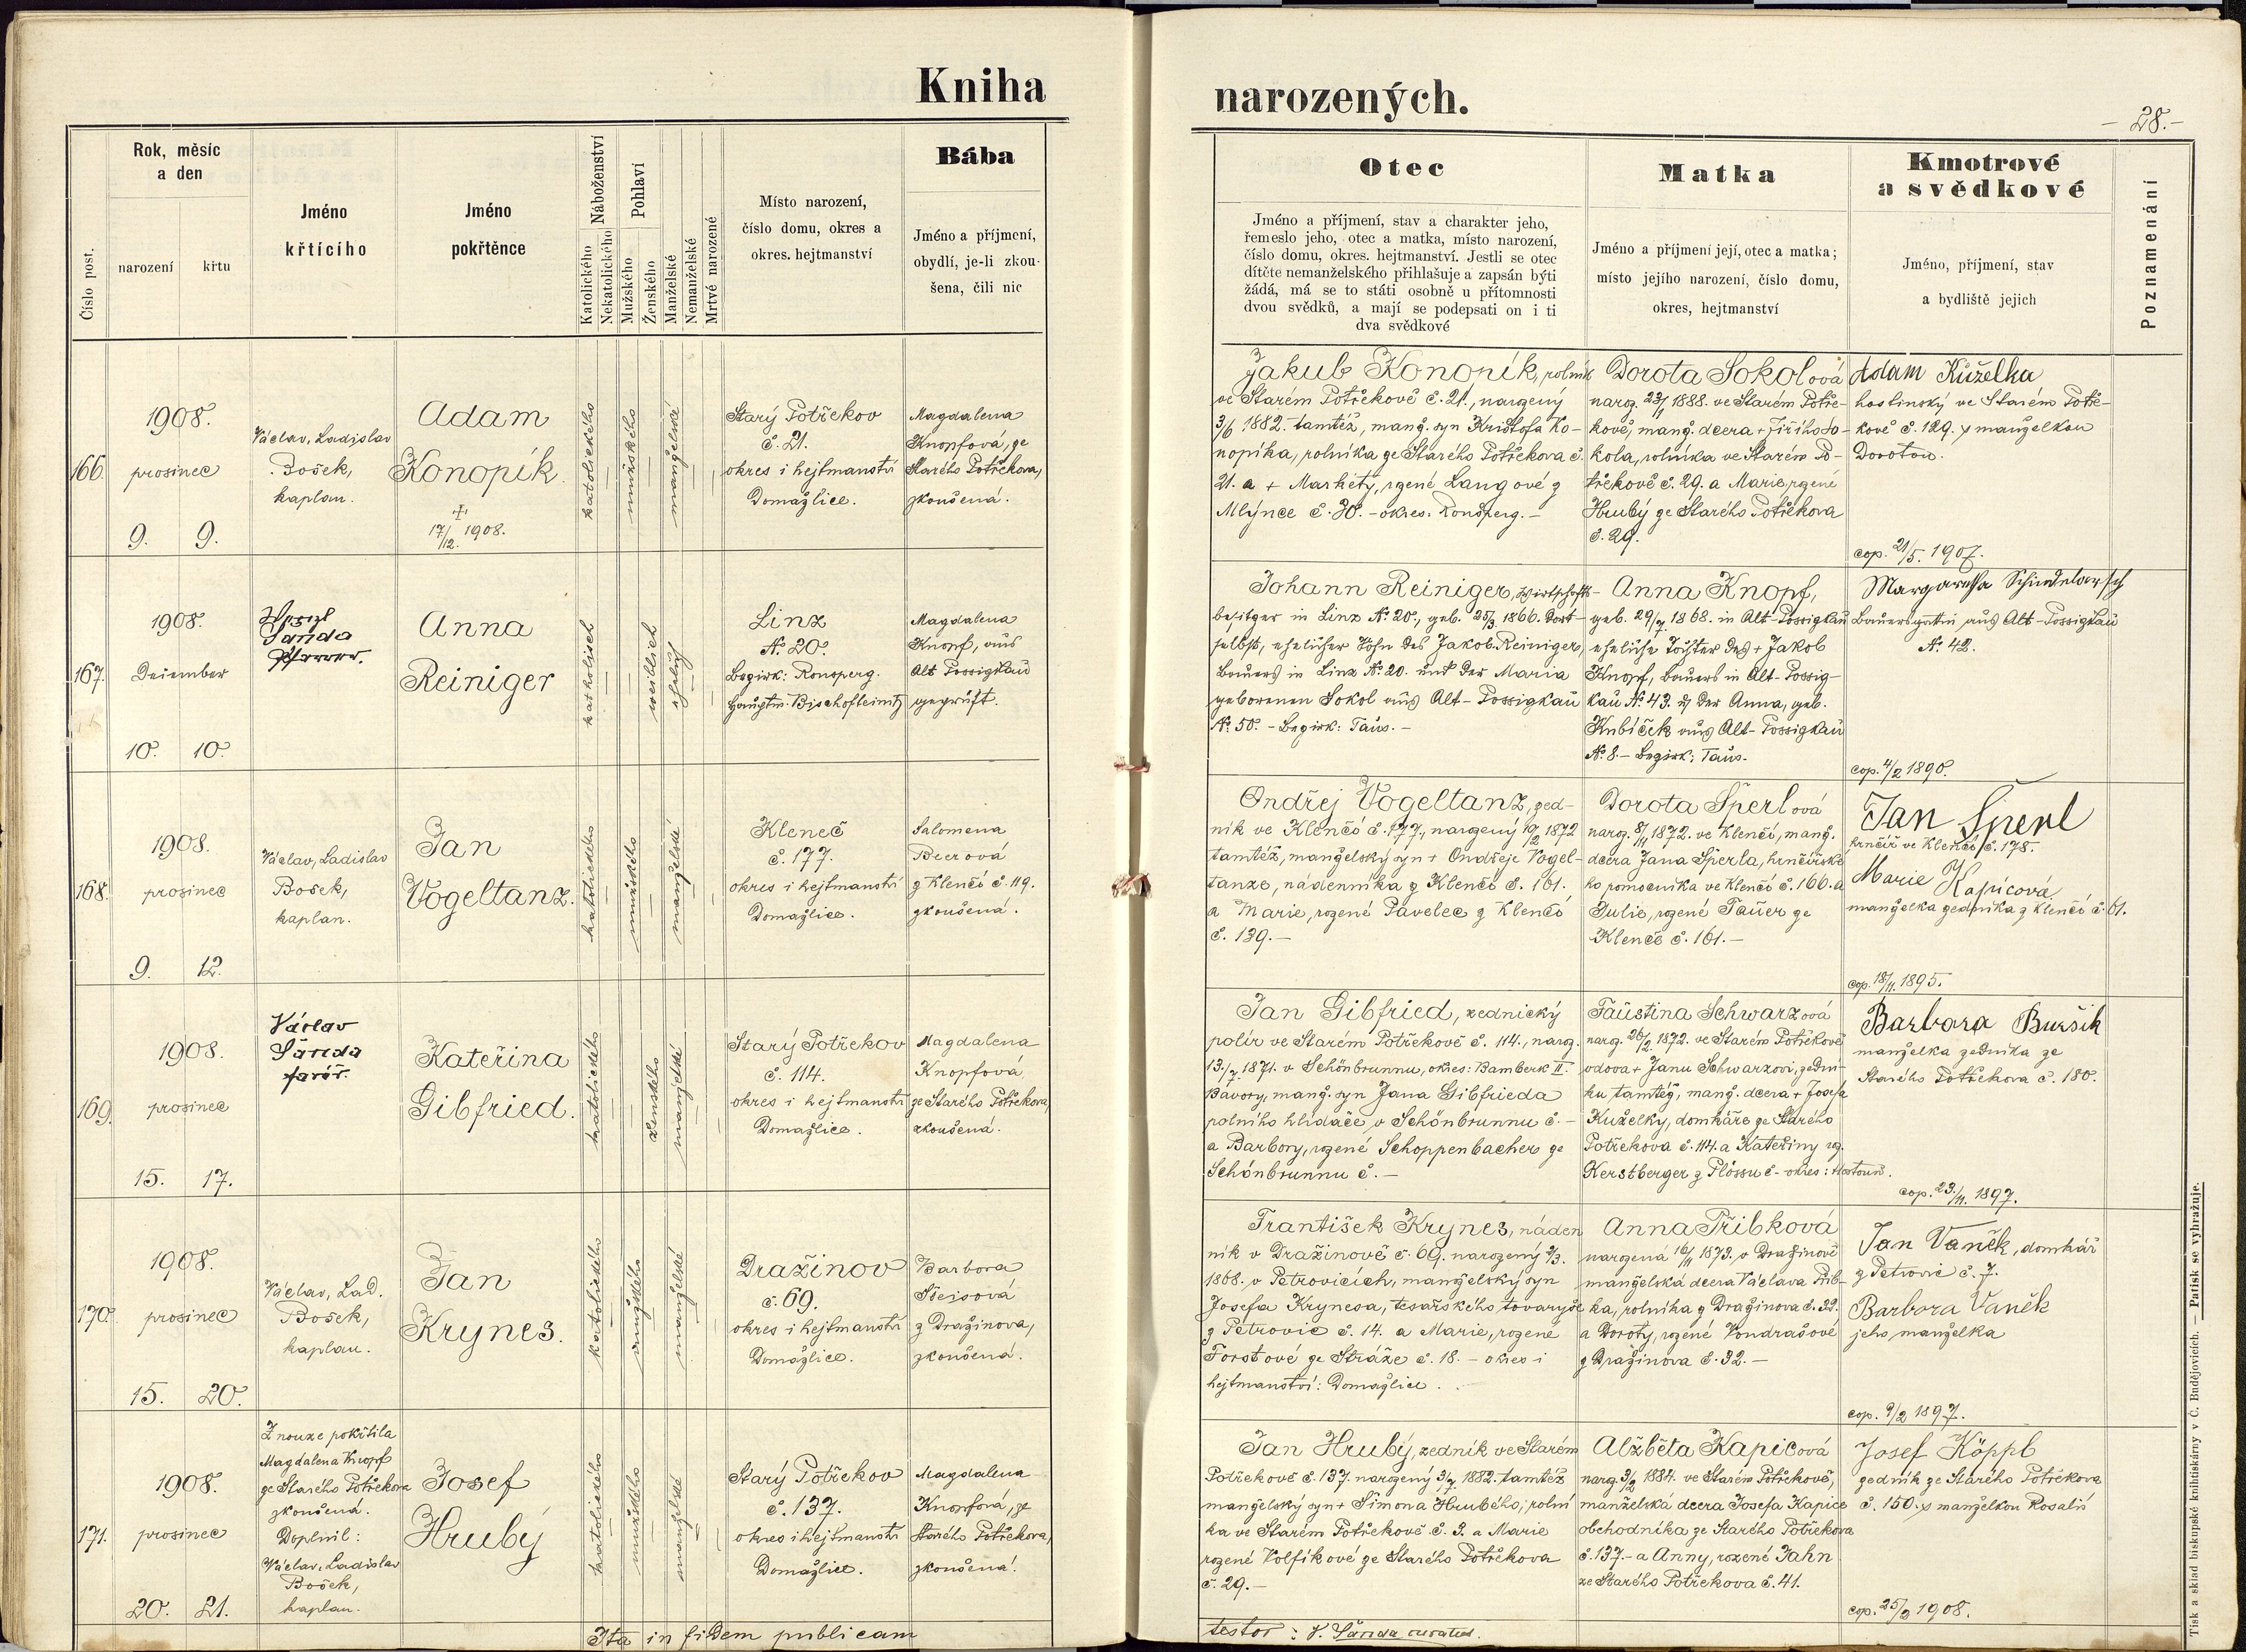 Kniha
narozených.
- 28. -
Číslo post.
Rok, měsíc
a den
narození
křtu
Jméno
křtícího
Jméno
pokřtěnce
Náboženství
Katolického
Nekatolického
Pohlaví
Mužského
Ženského
Manželské
Nemanželské
Mrtvé narozené
Místo narození,
číslo domu, okres a
okres. hejtmanství
Bába
Jméno a příjmení,
obydlí, je-li zkou-
šena, čili nic
Otec
Jméno a příjmení, stav a charakter jeho,
řemeslo jeho, otec a matka, místo narození,
číslo domu, okres. hejtmanství. Jestli se otec
dítěte nemanželského přihlašuje a zapsán býti
žádá, má se to státi osobně u přítomnosti
dvou svědků, a mají se podepsati on i ti
dva svědkové
Matka
Jméno a příjmení její, otec a matka;
místo jejího narození, číslo domu,
okres, hejtmanství
Kmotrové
a svědkové
Jméno, příjmení, stav
a bydliště jejich
Poznamenání
166.
1908.
prosinec
9. 9.
Václav, Ladislav
Bošek,
kaplan.
Adam
Konopík.
+
17/12. 1908.
katolického
mužského
manželské
Starý Potřekov
č. 21.
okres i hejtmanství
Domažlice.
Magdalena
Knopfová, ze
Starého Potřekova,
zkoušená.
Jakub Konopík, rolník
ve Starém Potřekově č. 21., narozený
3/6 1882. tamtéž, manž. syn Krištofa Ko-
nopíka, rolníka ze Starého Potřekova č.
21. a + Markéty, rozené Langové z
Mlýnce č. 30. - okres: Ronsperg. -
Dorota Sokolová
naroz. 23/1 1888. ve Starém Potře-
kově, manž. dcera + Jiřího So-
kola, rolníka ve Starém Po-
třekově č. 29. a Marie, rozené
Hrubý ze Starého Potřekova
č. 29.
Adam Kůželka
hostinský ve Starém Potře-
kově č. 129. s manželkou
Dorotou.
cop. 21/5. 1907.
167.
1908.
Dezember
10. 10.
Wenzl
Šanda
Pfarrer.
Anna
Reiniger
katholisch
weiblich
ehelich
Linz
No. 20.
Bezirk: Ronsperg.
Hauptm. Bischofteinitz
Magdalena
Knopf, aus
Alt Possigkau
geprüft.
Johann Reiniger, Wirtschafts-
besitzer in Linz No. 20., geb. 25/3. 1866. Dort-
selbst, ehelicher Sohn des Jakob Reiniger,
Bauers in Linz No. 20. und der Maria
geborenen Sokol aus Alt-Possigkau
No. 50. - Bezirk: Taus. -
Anna Knopf,
geb. 29/7 1868. in Alt-Possigkau
eheliche Tochter des + Jakob
Knopf, Bauers in Alt-Possig-
kau No. 43. u. der Anna, geb.
Kubíček aus Alt-Possigkau
No. 8. - Bezirk: Taus.
Margaretha Schindelarsch
Bauersgattin aus Alt-Possigkau
No. 42.
cop. 4/2 1890.
168.
1908.
prosinec
9. 12.
Václav, Ladislav
Bošek,
kaplan.
Jan
Vogeltanz.
katolického
mužského
manželské
Kleneč
č. 177.
okres i hejtmanství
Domažlice.
Salomena
Beerová
z Klenčí č. 119.
zkoušená.
Ondřej Vogeltanz, zed-
ník ve Klenčí č. 177., narozený 10/2 1872
tamtéž, manželský syn + Ondřeje Vogel-
tanze, nádenníka z Klenčí č. 161.
a Marie, rozené Pavelec z Klenčí
č. 139. -
Dorota Šperlová
naroz. 8/11 1872. ve Klenčí, manž.
dcera Jana Šperla, hrnčířské-
ho pomocníka ve Klenčí č. 166. a
Julie, rozené Tauer ze
Klenčí č. 161. -
Jan Šperl
hrnčíř ve Klenčí č. 178.
Marie Kapicová
manželka zedníka z Klenčí č. 61.
cop. 18/11. 1895.
169.
1908.
prosinec
15. 17.
Václav
Šanda
farář.
Kateřina
Gibfried.
katolického
ženského
manželské
Starý Potřekov
č. 114.
okres i hejtmanství
Domažlice.
Magdalena
Knopfová
ze Starého Potřekova,
zkoušená.
Jan Gibfried, zednický
polír ve Starém Potřekově č. 114., naroz.
13./7. 1871. v Schönbrunnu, okres: Bamberk II.
Bavory, manž. syn Jana Gibfrieda
polního hlídače v Schönbrunnu č. -
a Barbory, rozené Schoppenbacher ze
Schönbrunnu č. -
Faustina Schwarzová
naroz. 26/2. 1872. ve Starém Potřekově
vdova + Janu Schwarzovi, zední-
ku tamtéž, manž. dcera + Josefa
Kuželky, domkáře ze Starého
Potřekova č. 114. a Kateřiny roz.
Kerstberger z Plössu č. - okres: Hostouň.
Barbora Buršík
manželka zedníka ze
Starého Potřekova č. 180.
cop. 23./11. 1897.
170.
1908.
prosinec
15. 20.
Václav, Lad.
Bošek,
kaplan.
Jan
Krynes.
katolického
mužského
manželské
Dražinov
č. 69.
okres i hejtmanství
Domažlice.
Barbora
Steisová
z Dražinova,
zkoušená.
František Krynes, náden
ník v Dražinově č. 69. narozený
1868. v Petrovicích, manželský syn
Josefa Krynesa, tesařského tovaryše
z Petrovic č. 14. a Marie, rozené
Forstové ze Stráže č. 18. - okres i
hejtmanství: Domažlice.
Anna Přibková
narozená 16/11 1873. v Dražinově
manželská dcera Václava Přib-
ka, rolníka z Dražinova č. 32.
a Doroty, rozené Vondrašové
z Dražinova č. 32. -
Jan Vaněk, domkář
z Petrovic č. 7.
Barbora Vaněk
jeho manželka
cop. 9/2 1897.
171.
1908.
prosinec
20. 21.
Z nouze pokřtila
Magdalena Knopf
ze Starého Potřekova
zkoušená.
Doplnil:
Václav, Ladislav
Bošek,
kaplan.
Josef
Hrubý
katolického
mužského
manželské
Starý Potřekov
č. 137.
okres i hejtmanství
Domažlice.
Magdalena
Knopfová, ze
Starého Potřekova,
zkoušená.
Jan Hrubý, zedník ve Starém
Potřekově č. 137. narozený 3/7 1882. tamtéž
manželský syn + Šimona Hrubého, rolní
ka ve Starém Potřekově č. 3. a Marie
rozené Volfíkové ze Starého Potřekova
č. 29. -
Alžběta Kapicová
naroz. 3/2 1884. ve Starém Potřekově,
manželská dcera Josefa Kapice
obchodníka ze Starého Potřekova
č. 137. - a Anny, rozené Jahn
ze Starého Potřekova č. 41.
Josef Köppl
zedník ze Starého Potřekova
č. 150. s manželkou Rosalií
cop. 25/2 1908.
Ita in fidem publicam
testor: V. Šanda curatus.
Tisk a sklad biskupské knihtiskárny v Č. Budějovicích. — Patisk se vyhražuje.